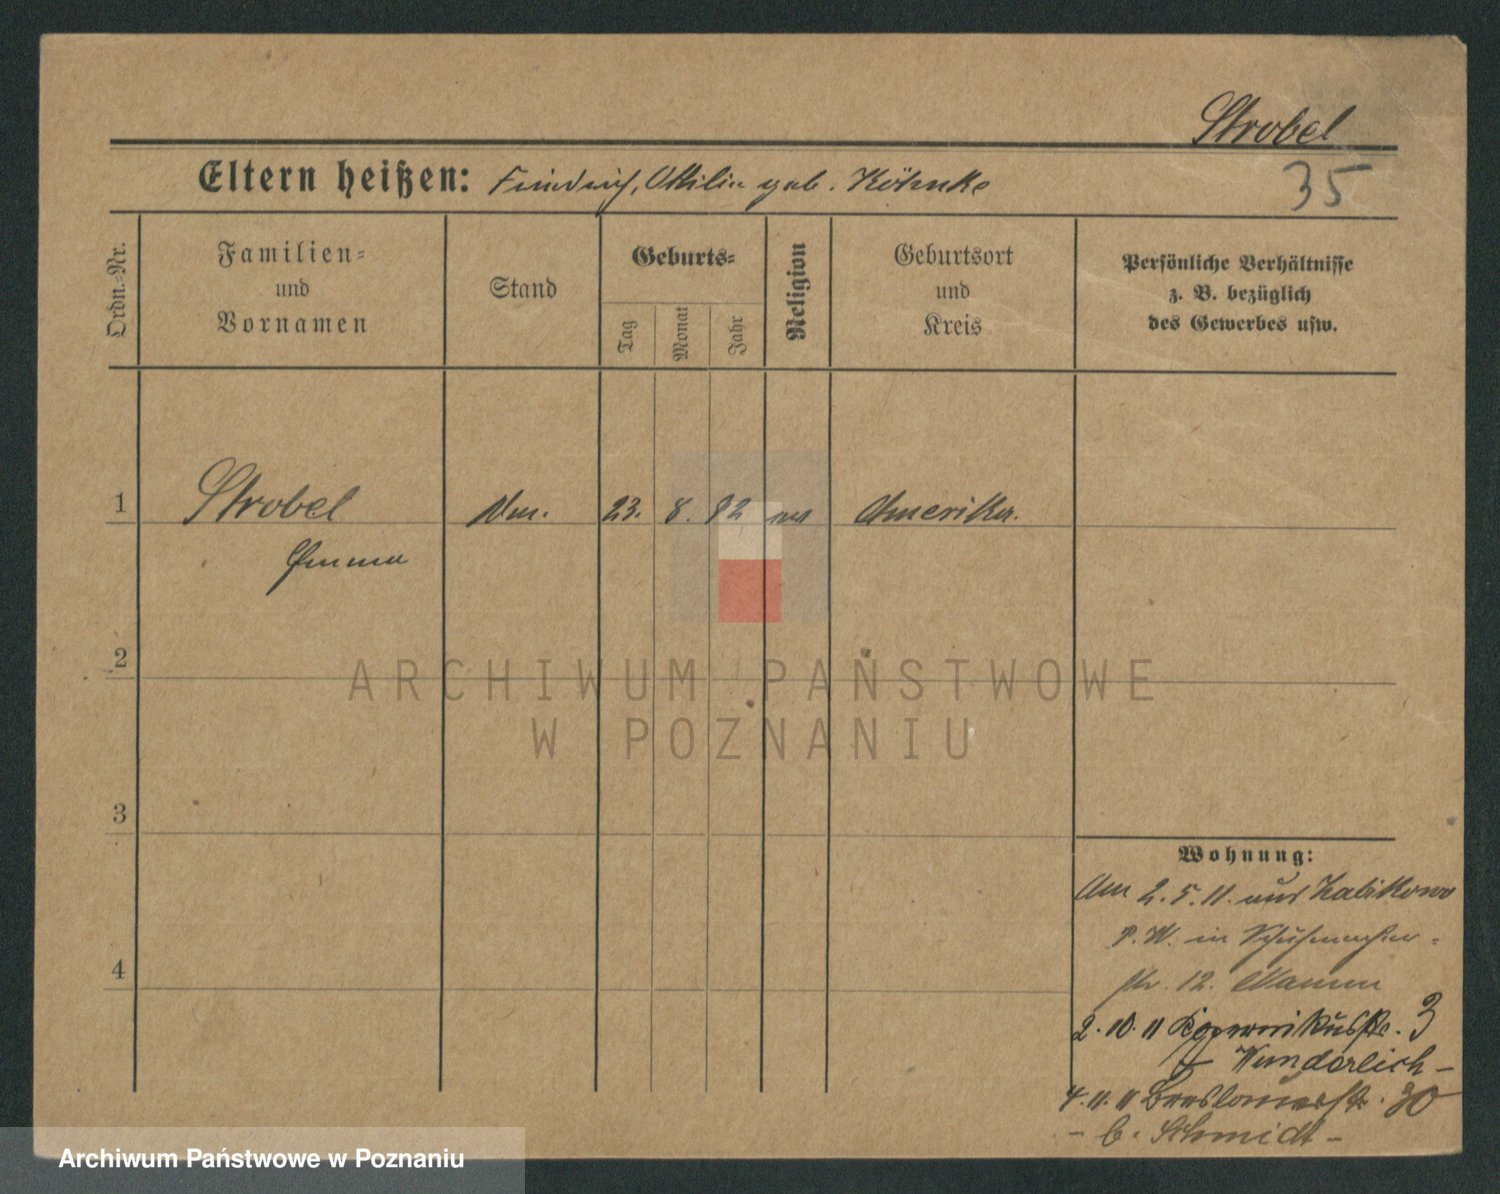 Strobel
35
Eltern heißen: Friedrich, Ottilie geb. Köhnke
Ordn.=Nr.
Familien=
und
Vornamen
Stand
Geburts=
Tag
Monat
Jahr
Religion
Geburtsort
und
Kreis
Persönliche Verhältnisse
z. B. bezüglich
des Gewerbes usw.
1 Strobel 23. 8. 92 Amerika.
Emma
2
3
4
Wohnung:
Am 2.5.11. aus Zabikowo
P. W. in Schuhmacher-
str. 12.
2.10.11 Kopernikusstr. 3
Wunderlich-
4.11.11 Breslauerstr. 30
- b. Schmidt -
ARCHIWUM PAŃSTWOWE
W POZNANIU
Archiwum Państwowe w Poznaniu